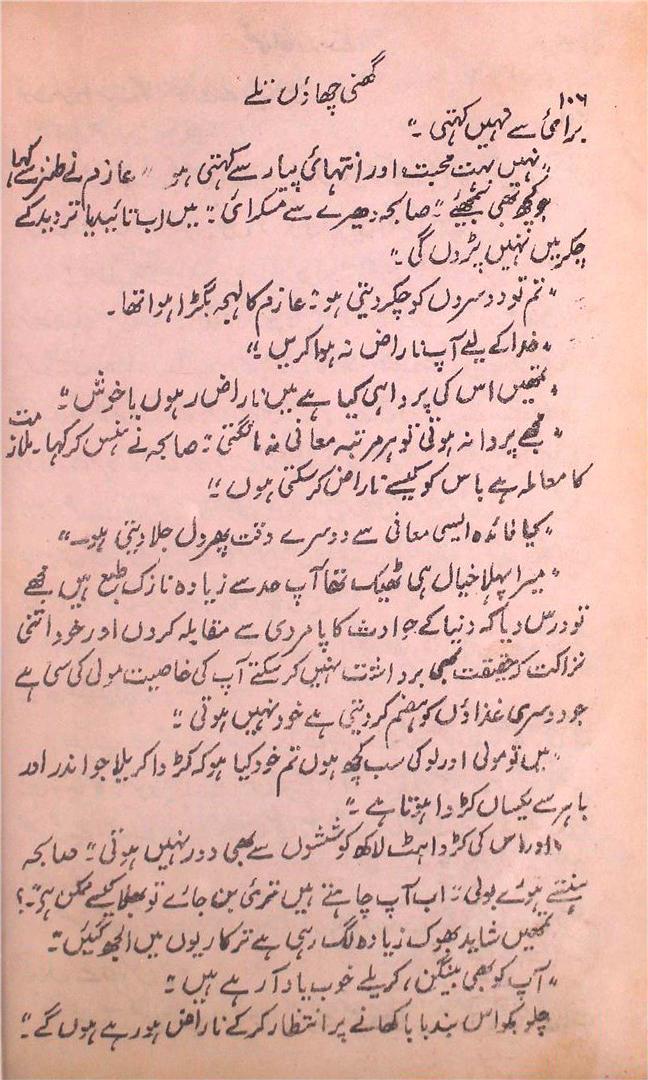 گھنی چھاؤں تلے
۱۰۶
برائی سے نہیں کہتی۔"
"نہیں بہت محبت اور انتہائی پیار سے کہتی ہو" عازم نے طنز سے کہا
جو کچھ بھی سمجھئے" صابحہ دھیرے سے مسکرائی۔" میں اب تائید یا تردید کے
چکر میں نہیں پڑوں گی۔"
"تم تو دوسروں کو چکر دیتی ہو۔" عازم کا لہجہ بگڑا ہوا تھا۔
"خدا کے لیے آپ ناراض نہ ہوا کریں۔"
"تمھیں اس کی پرواہی کیا ہے میں ناراض ہوں یا خوش۔"
"مجھے پروا نہ ہوتی تو ہر مرتبہ معافی نہ مانگتی۔" صابحہ نے ہنس کر کہا۔ ملازمت
کا معاملہ ہے باس کو کیسے ناراض کر سکتی ہوں۔"
"کیا فائدہ ایسی معافی سے دوسرے وقت پھر دل جلا دیتی ہو۔"
"میرا پہلا خیال ہی ٹھیک تھا آپ حد سے زیادہ نازک طبع ہیں مجھے
تو درس دیا کہ دنیا کے حوادث کا پامردی سے مقابلہ کروں اور خود اتنی
نزاکت کہ حقیقت بھی برداشت نہیں کر سکتے آپ کی خاصیت مولی کی سی ہے
جو دوسری غذاؤں کو ہضم کر دیتی ہے خود نہیں ہوتی۔"
"میں تو مولی اور لوکی سب کچھ ہوں تم خود کیا ہو کہ کڑوا کریلا جو اندر اور
باہر سے یکساں کڑوا ہوتا ہے۔"
"اور اس کی کڑواہٹ لاکھ کوششوں سے بھی دور نہیں ہوتی۔" صابحہ
ہنستے ہوئے بولی۔" اب آپ چاہتے ہیں ترئی بن جائے تو بھلا کیسے ممکن ہے۔"؟
تمھیں شاید بھوک زیادہ لگ رہی ہے ترکاریوں میں الجھ گئیں۔"
"آپ کو بھی بینگن، کریلے خوب یاد آ رہے ہیں۔"
چلو بکواس بند بابا کھانے پر انتظار کر کے ناراض ہو رہے ہوں گے۔"